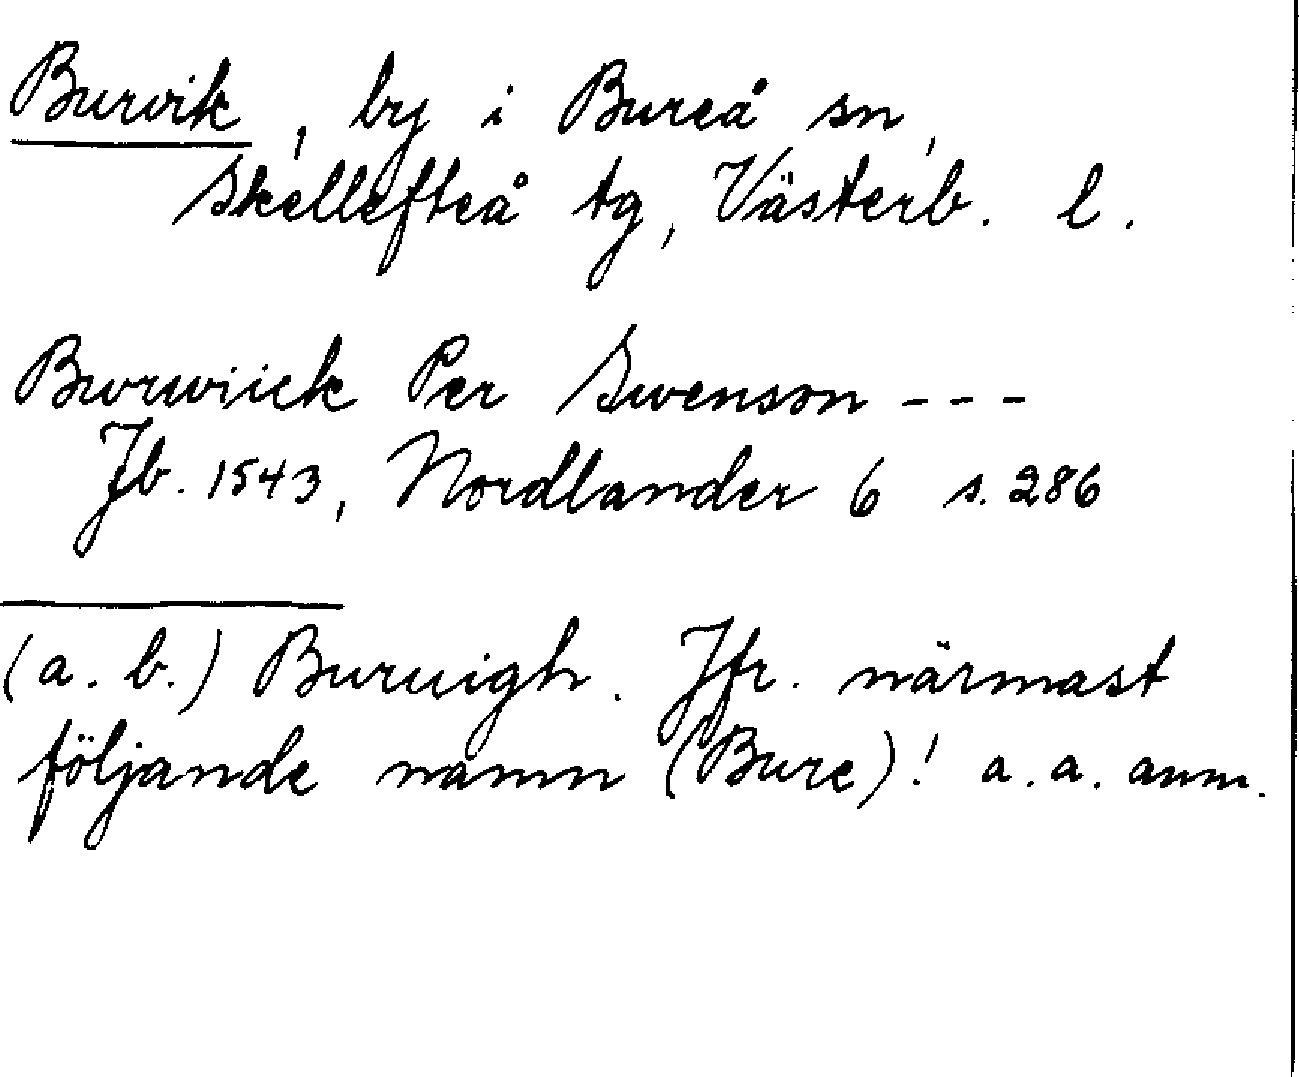 Burvik, by i Bureå sn,
Skellefteå tg, Västerb. l.
Burwiick Per Swenson ---
Jb. 1543, Nordlander 6 s. 286
(a. b.) Buruigh. Jfr. närmast
följande namn (Bure)! a. a. anm.